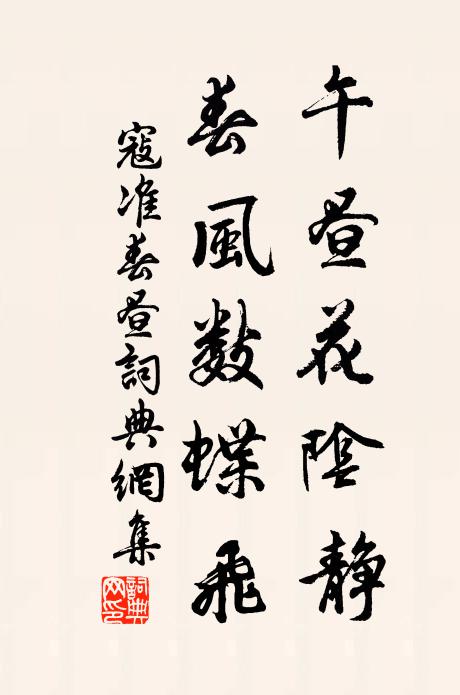 午昼花陰静
春風数蝶飛
寇准春昼詞典網集
詞典网印